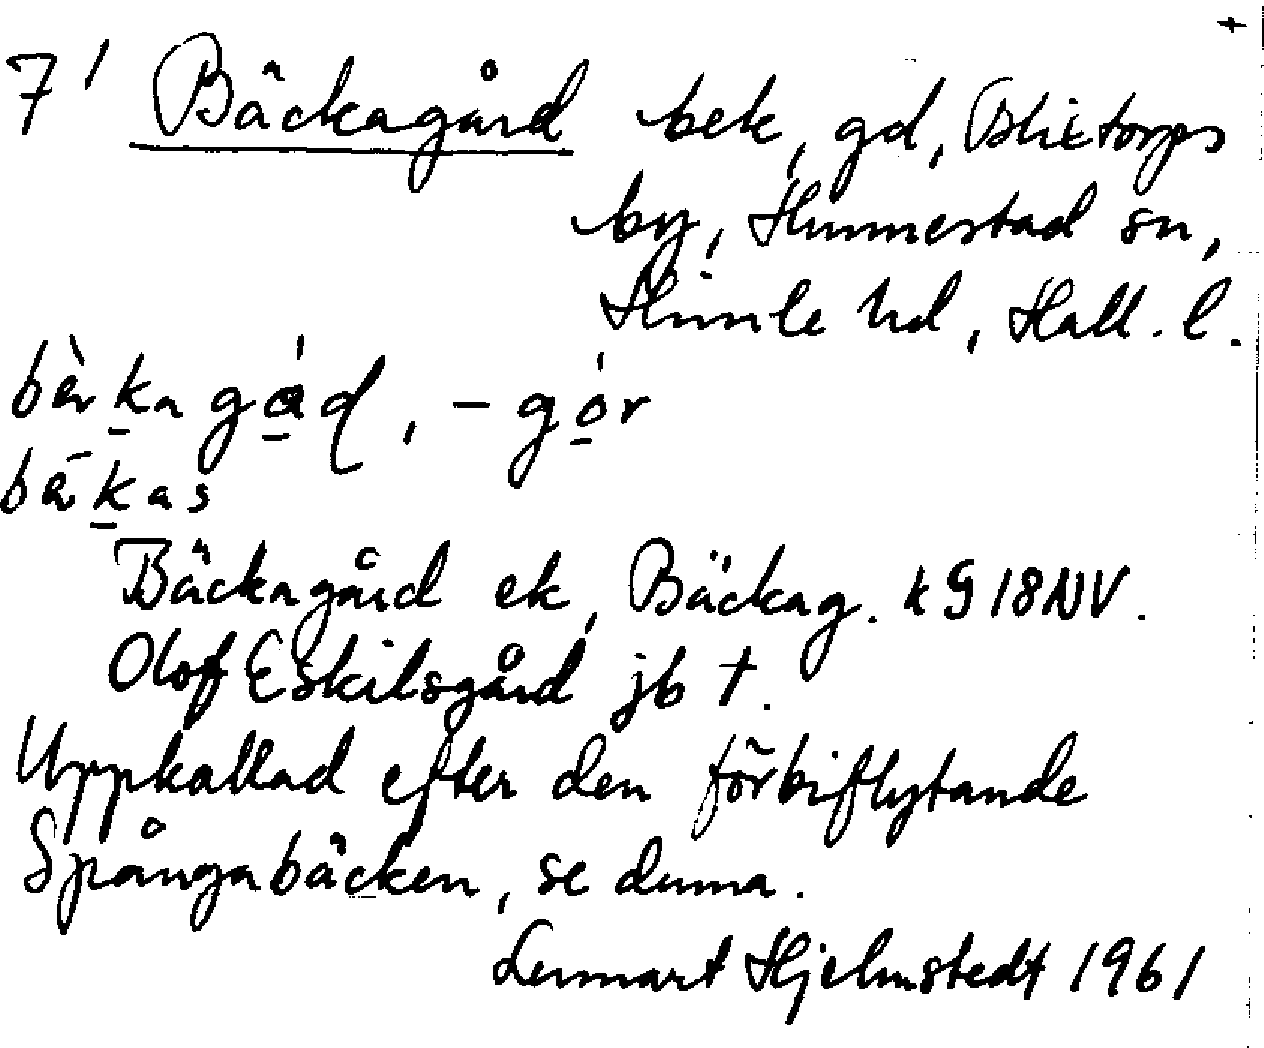 +
7¹ Bäckagård bek, gd, Blixtorps
by, Hunnestad sn,
Himle hd, Hall. l.
bä̀rkagád, -gór
bā́kas
Bäckagård ek, Bäckag. k G 18 NV.
Olof Eskilsgård jb †.
Uppkallad efter den förbiflytande
Spångabäcken, se denna.
Lennart Hjelmstedt 1961